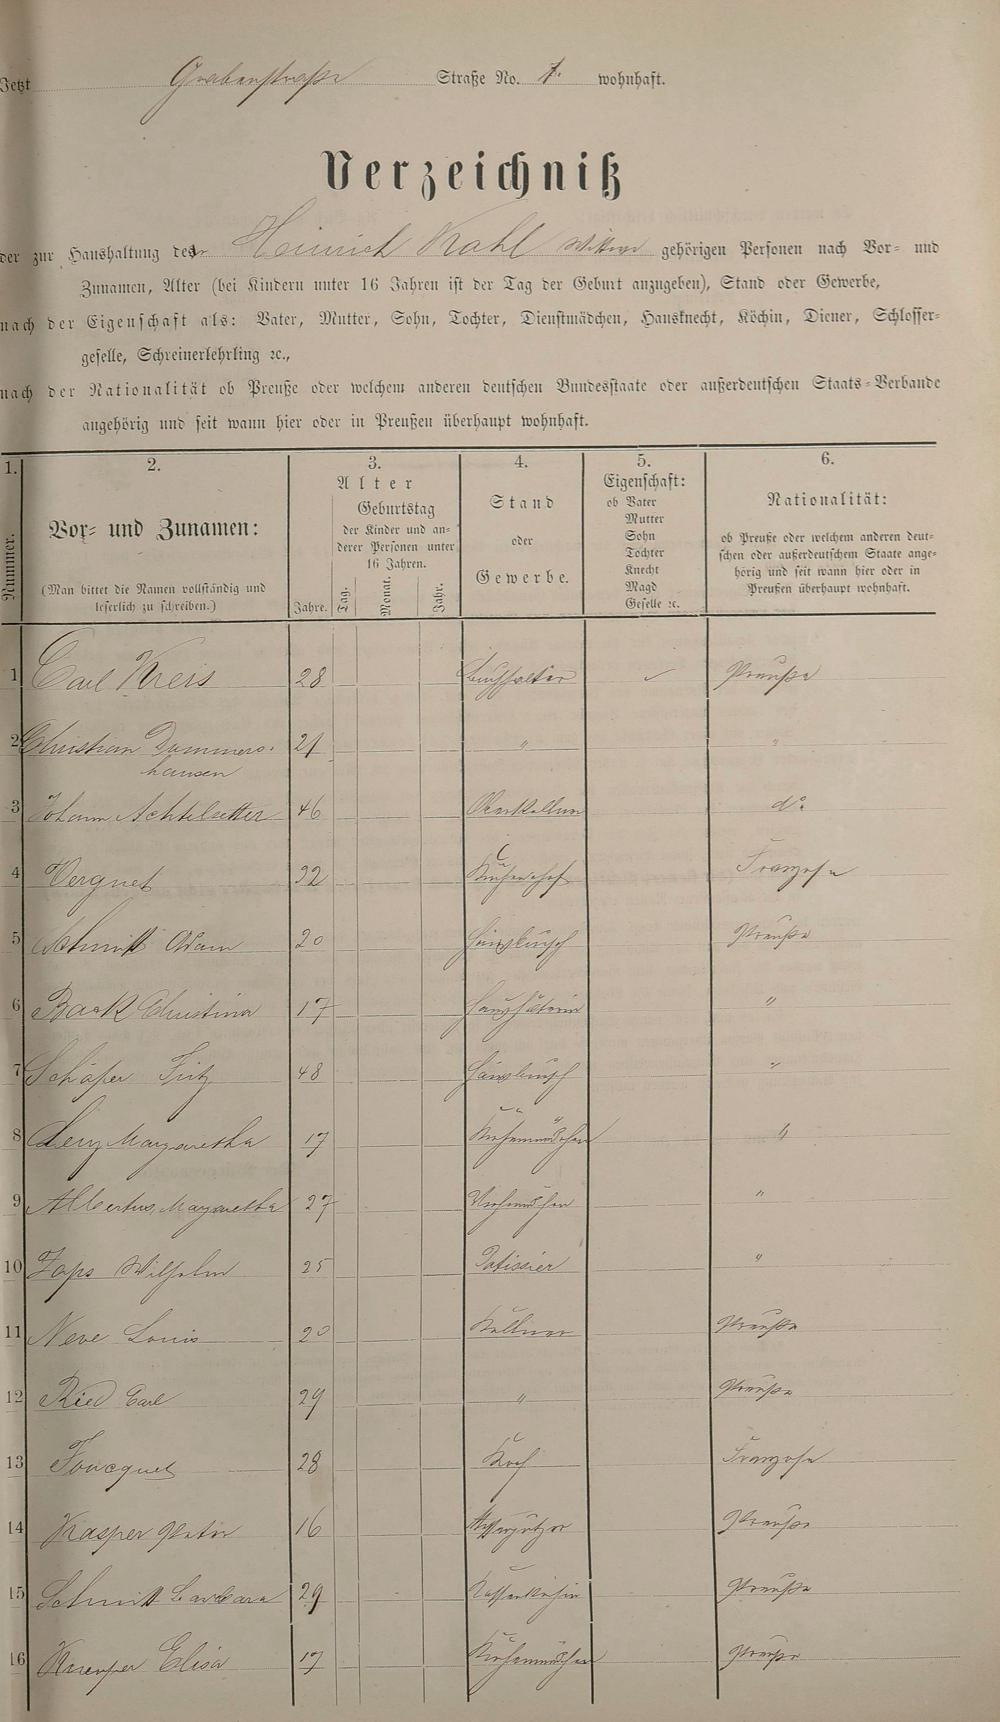 Jetzt Grabenstraße Straße No. 1. wohnhaft.
Verzeichniß
der zur Haushaltung der Heinrich Kahl Wittwe gehörigen Personen nach Vor- und
Zunamen, Alter (bei Kindern unter 16 Jahren ist der Tag der Geburt anzugeben), Stand oder Gewerbe,
nach der Eigenschaft als: Vater, Mutter, Sohn, Tochter, Dienstmädchen, Hausknecht, Köchin, Diener, Schlosser-
geselle, Schreinerlehrling ꝛc.,
nach der Nationalität ob Preuße oder welchem anderen deutschen Bundesstaate oder außerdeutschen Staats-Verbande
angehörig und seit wann hier oder in Preußen überhaupt wohnhaft.
1. 2. 3. 4. 5. 6.
Nummer.
Vor- und Zunamen:
(Man bittet die Namen vollständig und
leserlich zu schreiben.)
Alter
Jahre.
Geburtstag
der Kinder und an-
derer Personen unter
16 Jahren.
Tag. Monat. Jahr.
Stand
oder
Gewerbe.
Eigenschaft:
ob Vater
Mutter
Sohn
Tochter
Knecht
Magd
Geselle ꝛc.
Nationalität:
ob Preuße oder welchem anderen deut-
schen oder außerdeutschem Staate ange-
hörig und seit wann hier oder in
Preußen überhaupt wohnhaft.
1 Carl Kreis 28 Buchhalter Preuße
2 Christian Dommers- 21 " "
hausen
3 Johann Achtelstetter 46 Oberkellner do
4 Vergnet 32 Küchenchef Franzose
5 Schmitt Adam 20 Hausbursch Preuße
6 Baak Christina 17 Haushälterin "
7 Schäfer Fritz 48 Hausbursch "
8 Lenz Margaretha 17 Küchenmädchen "
9 Albertus Margaretha 27 "
10 Zaps Wilhelm 25 Patissier "
11 Neve Louis 20 Kellner Preuße
12 Ried Carl 29 " Preuße
13 Foucquet 28 Koch Franzose
14 Kasper Peter 16 Messerputzer Preuße
15 Schmitt Barbara 29 Kaffeeköchin Preuße
16 Knieper Elisa 17 Küchenmädchen Preuße